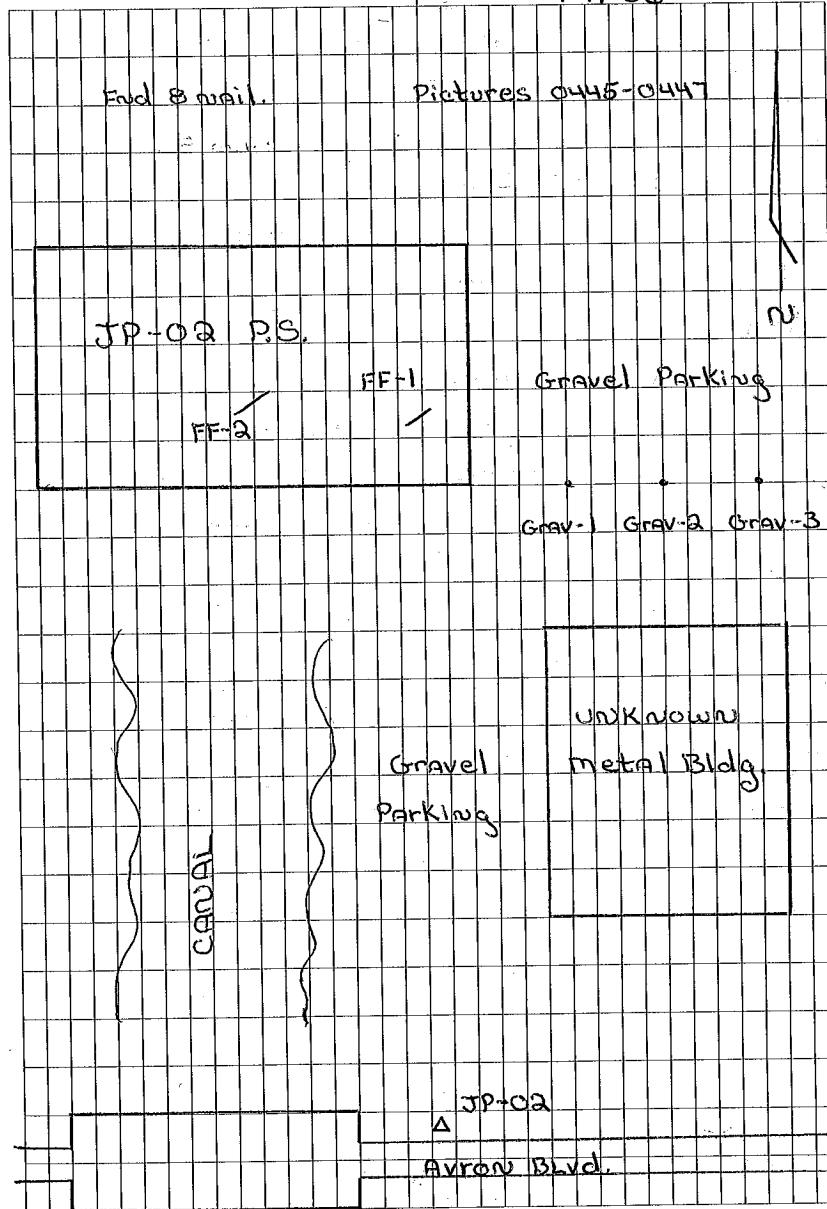 Fnd 8 nail. Pictures 0445-0447
N
JP-02 P.S.
FF-1
FF-2
Gravel Parking
Grav-1 Grav-2 Grav-3
UNKNOWN
Metal Bldg.
Gravel
Parking
CANAL
JP-02
Avron Blvd.